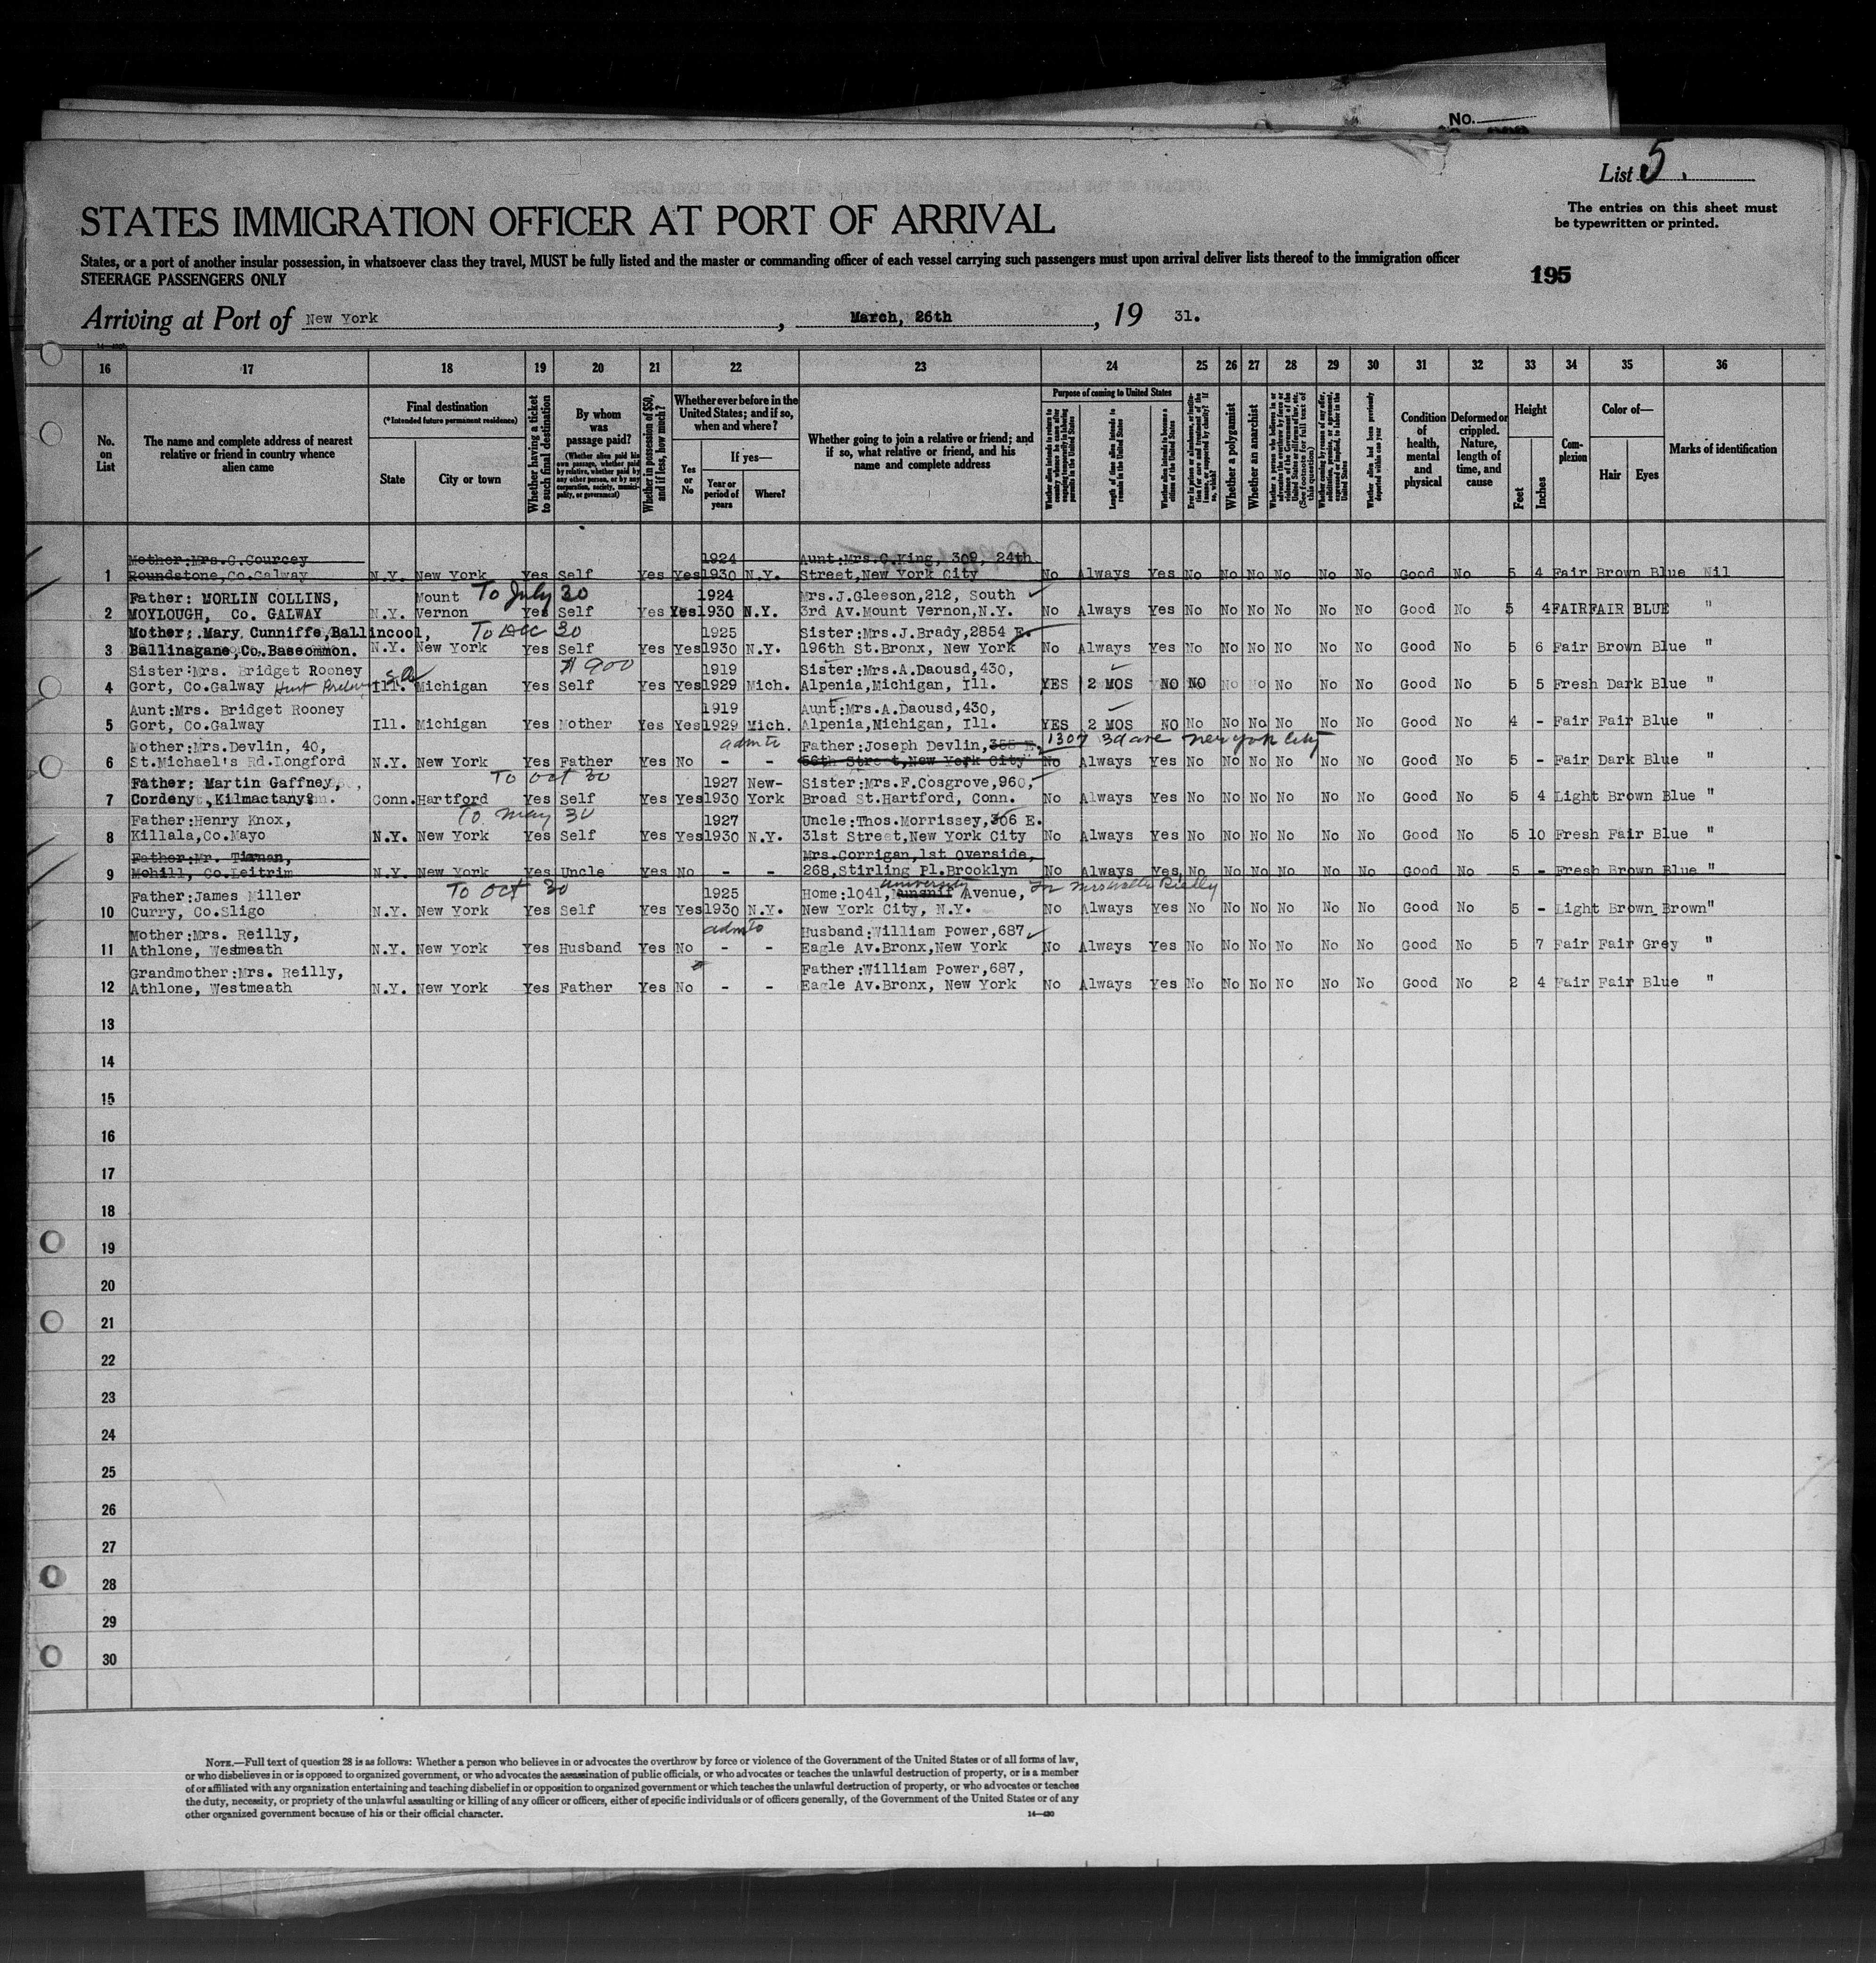 No.
List 5.
The entries on this sheet must
be typewritten or printed.
STATES IMMIGRATION OFFICER AT PORT OF ARRIVAL
States, or a port of another insular possession, in whatsoever class they travel, MUST be fully listed and the master or commanding officer of each vessel carrying such passengers must upon arrival deliver lists thereof to the immigration officer
STEERAGE PASSENGERS ONLY
195
Arriving at Port of New York, March, 26th, 19 31.
16 17 18 19 20 21 22 23 24 25 26 27 28 29 30 31 32 33 34 35 36
No. on List
The name and complete address of nearest relative or friend in country whence alien came
Final destination
(*Intended future permanent residence)
State
City or town
Whether having a ticket to such final destination
By whom was passage paid?
(Whether alien paid his own passage, whether paid by relative, whether paid by any other person, or by any corporation, society, municipality, or government)
Whether in possession of $50, and if less, how much?
Whether ever before in the United States; and if so, when and where?
Yes or No
If yes—
Year or period of years
Where?
Whether going to join a relative or friend; and if so, what relative or friend, and his name and complete address
Purpose of coming to United States
Length of time alien intends to remain in the United States
Whether alien intends to become a citizen of the United States
Whether a polygamist
Whether an anarchist
Whether alien had been previously deported within one year
Condition of health, mental and physical
Deformed or crippled. Nature, length of time, and cause
Height
Feet
Inches
Complexion
Color of—
Hair
Eyes
Marks of identification
Mother:Mrs.C.Courcey 1924 Aunt:Mrs.C.King, 309, 24th
1 Roundstone,Co.Galway N.Y. New York Yes Self Yes Yes 1930 N.Y. Street,New York City No Always Yes No No No No No No Good No 5 4 Fair Brown Blue Nil
Father: MORLIN COLLINS, Mount To July 30 1924 Mrs.J.Gleeson,212, South
2 MOYLOUGH, Co. GALWAY N.Y. Vernon Yes Self Yes Yes 1930 N.Y. 3rd Av.Mount Vernon,N.Y. No Always Yes No No No No No No Good No 5 4 FAIR FAIR BLUE "
Mother: Mary Cunniffe,Ballincool, To Dec 30 1925 Sister:Mrs.J.Brady,2854 E.
3 Ballinagane,Co.Basommon. N.Y. New York Yes Self Yes Yes 1930 N.Y. 196th St.Bronx, New York No Always Yes No No No No No No Good No 5 6 Fair Brown Blue "
Sister:Mrs. Bridget Rooney $900 1919 Sister:Mrs.A.Daousd,430,
4 Gort, Co.Galway Ill. Michigan Yes Self Yes Yes 1929 Mich. Alpenia,Michigan, Ill. YES 2 MOS NO NO No No No No No Good No 5 5 Fresh Dark Blue "
Aunt:Mrs. Bridget Rooney 1919 Aunt:Mrs.A.Daousd,430,
5 Gort, Co.Galway Ill. Michigan Yes Mother Yes Yes 1929 Mich. Alpenia,Michigan, Ill. YES 2 MOS NO No No No No No No Good No 4 - Fair Fair Blue "
Mother:Mrs.Devlin, 40, admto Father:Joseph Devlin,355 E. 1307 3d ave New York City
6 St.Michael's Rd.Longford N.Y. New York Yes Father Yes No - - 56th Street,New York City No Always Yes No No No No No No Good No 5 - Fair Dark Blue "
Father: Martin Gaffney, To Oct 30 1927 New- Sister:Mrs.F.Cosgrove,960,
7 Cordeny, Kilmactany? Conn. Hartford Yes Self Yes Yes 1930 York Broad St.Hartford, Conn. No Always Yes No No No No No No Good No 5 4 Light Brown Blue "
Father:Henry Knox, To May 30 1927 Uncle:Thos.Morrissey,306 E.
8 Killala,Co.Mayo N.Y. New York Yes Self Yes Yes 1930 N.Y. 31st Street,New York City No Always Yes No No No No No No Good No 5 10 Fresh Fair Blue "
Father:Mr. Tiernan, Mrs.Corrigan,1st Overside,
9 Mohill, Co.Leitrim N.Y. New York Yes Uncle Yes No - - 268,Stirling Pl.Brooklyn No Always Yes No No No No No No Good No 5 - Fresh Brown Blue "
Father:James Miller To Oct 30 1925 Home:1041, University Avenue,
10 Curry, Co.Sligo N.Y. New York Yes Self Yes Yes 1930 N.Y. New York City, N.Y. No Always Yes No No No No No No Good No 5 - Light Brown Brown "
Mother:Mrs. Reilly, admto Husband:William Power,687
11 Athlone, Westmeath N.Y. New York Yes Husband Yes No - - Eagle Av.Bronx,New York No Always Yes No No No No No No Good No 5 7 Fair Fair Grey "
Grandmother:Mrs. Reilly, Father:William Power,687,
12 Athlone, Westmeath N.Y. New York Yes Father Yes No - - Eagle Av.Bronx, New York No Always Yes No No No No No No Good No 2 4 Fair Fair Blue "
13
14
15
16
17
18
19
20
21
22
23
24
25
26
27
28
29
30
NOTE.—Full text of question 28 is as follows: Whether a person who believes in or advocates the overthrow by force or violence of the Government of the United States or of all forms of law,
or who disbelieves in or is opposed to organized government, or who advocates the assassination of public officials, or who advocates or teaches the unlawful destruction of property, or is a member
of or affiliated with any organization entertaining and teaching disbelief in or opposition to organized government or which teaches the unlawful destruction of property, or who advocates or teaches
the duty, necessity, or propriety of the unlawful assaulting or killing of any officer or officers, either of specific individuals or of officers generally, of the Government of the United States or of any
other organized government because of his or their official character.
14—430